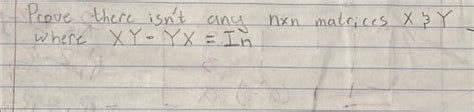 Prove there isn't any nxn matrices X & Y
where XY - YX = In